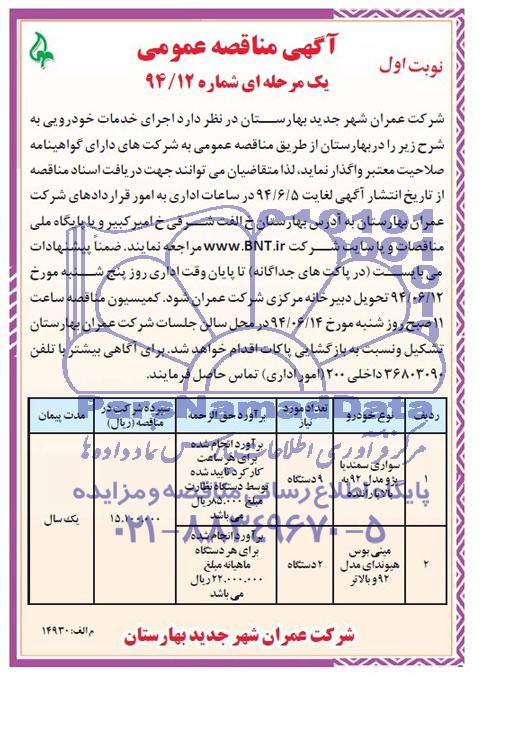 آگهی مناقصه عمومی
نوبت اول
یک مرحله ای شماره ۹۴/۱۲
شرکت عمران شهر جدید بهارستان در نظر دارد اجرای خدمات خودرویی به
شرح زیر را در بهارستان از طریق مناقصه عمومی به شرکت های دارای گواهینامه
صلاحیت معتبر واگذار نماید، لذا متقاضیان می توانند جهت دریافت اسناد مناقصه
از تاریخ انتشار آگهی لغایت ۹۴/۶/۵ در ساعات اداری به امور قراردادهای شرکت
عمران بهارستان به آدرس بهارستان خ الفت شرقی خ امیر کبیر و یا پایگاه ملی
مناقصات و یا سایت شرکت www.BNT.ir مراجعه نمایند. ضمناً پیشنهادات
می بایست (در پاکت های جداگانه) تا پایان وقت اداری روز پنج شنبه مورخ
۹۴/۰۶/۱۲ تحویل دبیرخانه مرکزی شرکت عمران شود. کمیسیون مناقصه ساعت
۱۱ صبح روز شنبه مورخ ۹۴/۰۶/۱۴ در محل سالن جلسات شرکت عمران بهارستان
تشکیل ونسبت به بازگشایی پاکات اقدام خواهد شد. برای آگاهی بیشتر با تلفن
۳۶۸۰۳۰۹۰ داخلی ۲۰۰ (امور اداری) تماس حاصل فرمایند.
ردیف نوع خودرو تعداد مورد نیاز برآورد حق الزحمه سپرده شرکت در مناقصه (ریال) مدت پیمان
۱ سواری سمند یا پژو مدل ۹۲ به بالا با راننده ۹ دستگاه برآورد انجام شده برای هر ساعت کارکرد تایید شده توسط دستگاه نظارت مبلغ ۸۵.۰۰۰ ریال می باشد
۱۵.۲۰۰.۰۰۰ یک سال
۲ مینی بوس هیوندای مدل ۹۲ و بالاتر ۲ دستگاه برآورد انجام شده برای هر دستگاه ماهیانه مبلغ ۲۲.۰۰۰.۰۰۰ ریال می باشد
ParsNamadData
مرکز فرآوری اطلاعات پارس نماد داده ها
پایگاه اطلاع رسانی مناقصه و مزایده
۰۲۱-۸۸۳۴۹۶۷۰-۵
شرکت عمران شهر جدید بهارستان
م الف: ۱۴۹۳۰